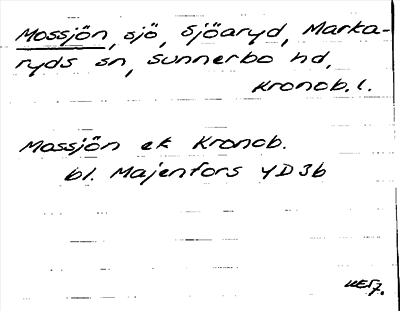 Mossjön, sjö, Sjöaryd, Marka-
ryds sn, Sunnerbo hd,
Kronob. l.
Mossjön ek Kronob.
bl. Majenfors 4D3b